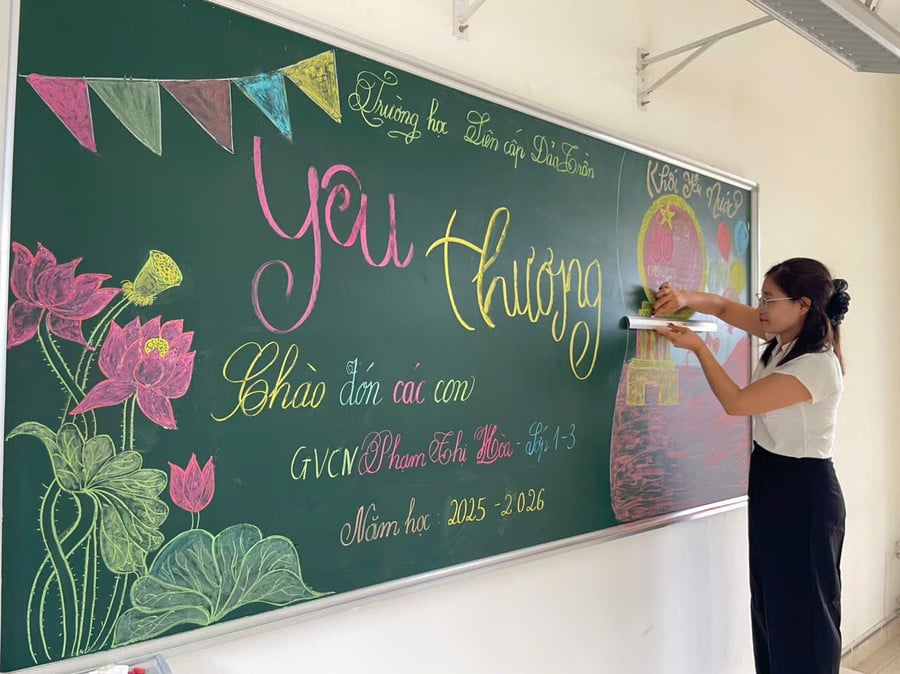 Trường học Liên cấp
yêu
thương
Chào đón các con
GVCN Phạm Thị Hòa - Lớp 1-3
Năm học: 2025 - 2026
Khối Yêu Nước
1945-2025